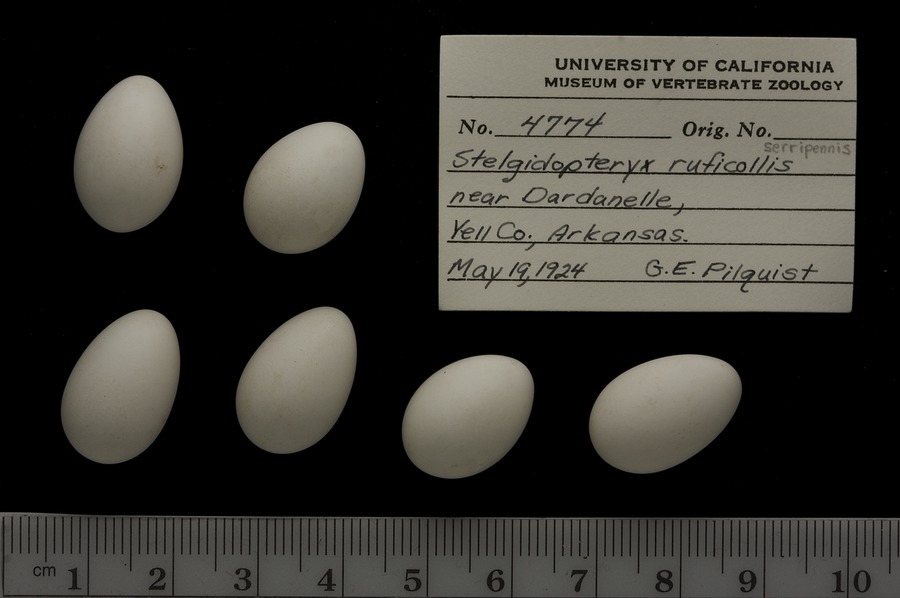 UNIVERSITY OF CALIFORNIA
MUSEUM OF VERTEBRATE ZOOLOGY
No. 4774 Orig. No.
serripennis
Stelgidopteryx ruficollis
near Dardanelle,
Yell Co., Arkansas.
May 19, 1924 G.E. Pilquist
cm 1 2 3 4 5 6 7 8 9 10